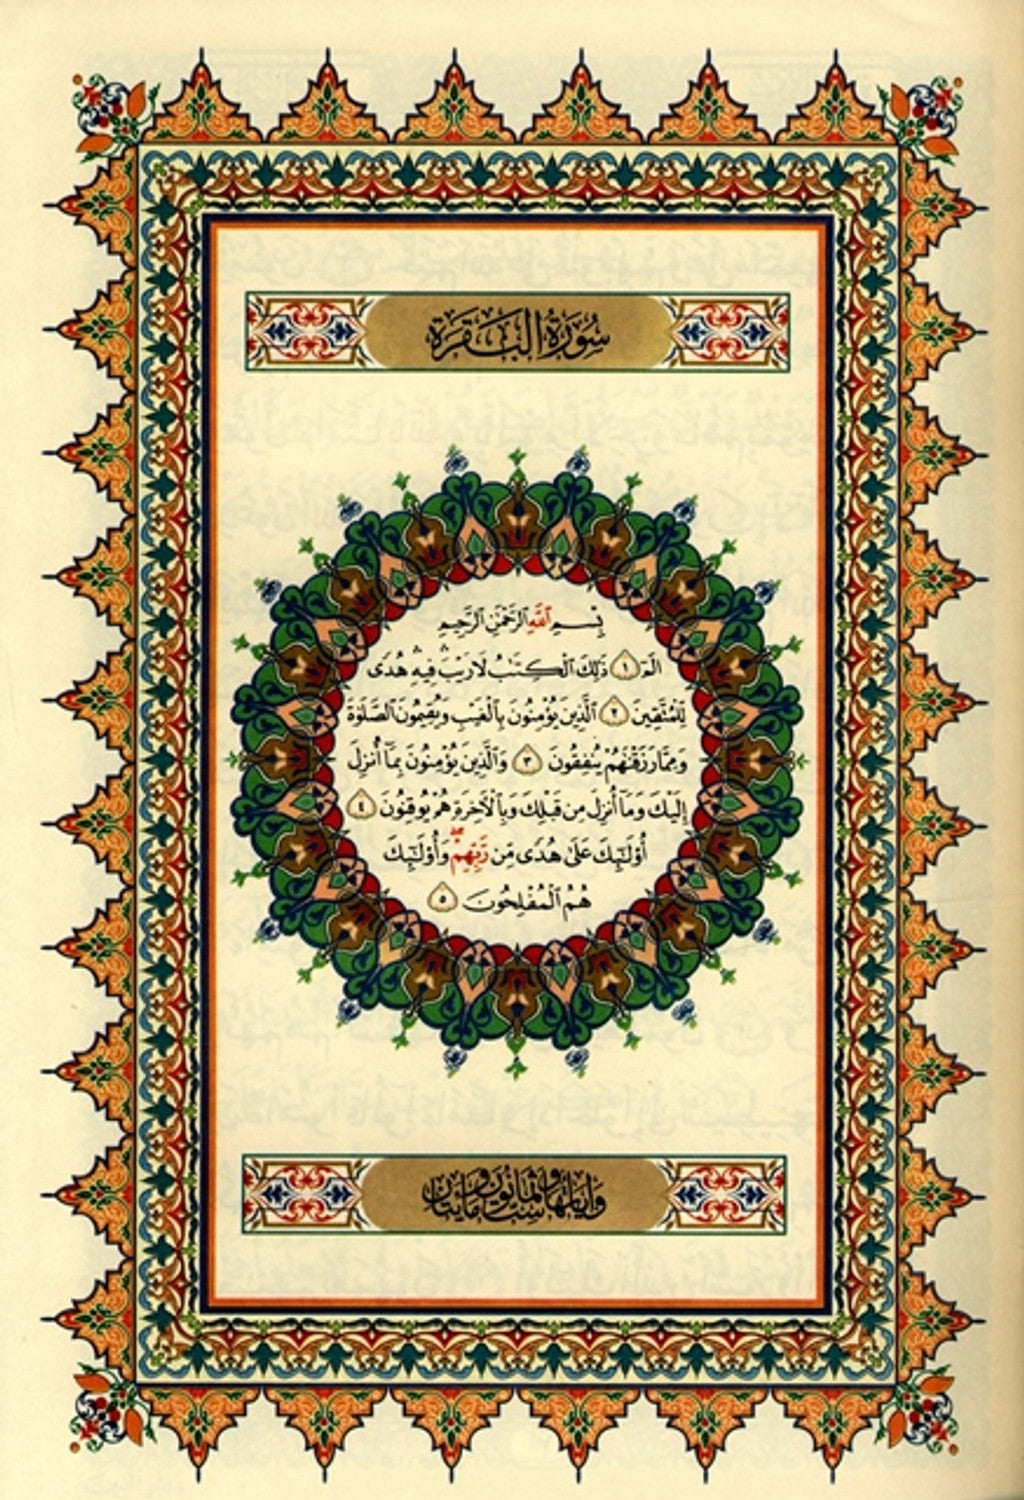 سُورَةُ البَقَرَةِ
بِسْمِ ٱللَّهِ ٱلرَّحْمَٰنِ ٱلرَّحِيمِ
الٓمٓ ١ ذَٰلِكَ ٱلْكِتَٰبُ لَا رَيْبَ ۛ فِيهِ ۛ هُدًى
لِّلْمُتَّقِينَ ٢ ٱلَّذِينَ يُؤْمِنُونَ بِٱلْغَيْبِ وَيُقِيمُونَ ٱلصَّلَوٰةَ
وَمِمَّا رَزَقْنَٰهُمْ يُنفِقُونَ ٣ وَٱلَّذِينَ يُؤْمِنُونَ بِمَآ أُنزِلَ
إِلَيْكَ وَمَآ أُنزِلَ مِن قَبْلِكَ وَبِٱلْءَاخِرَةِ هُمْ يُوقِنُونَ ٤
أُو۟لَٰٓئِكَ عَلَىٰ هُدًى مِّن رَّبِّهِمْ ۖ وَأُو۟لَٰٓئِكَ
هُمُ ٱلْمُفْلِحُونَ ٥
وَآيَاتُهَا سِتٌّ وَثَمَانُونَ وَمِائَتَانِ